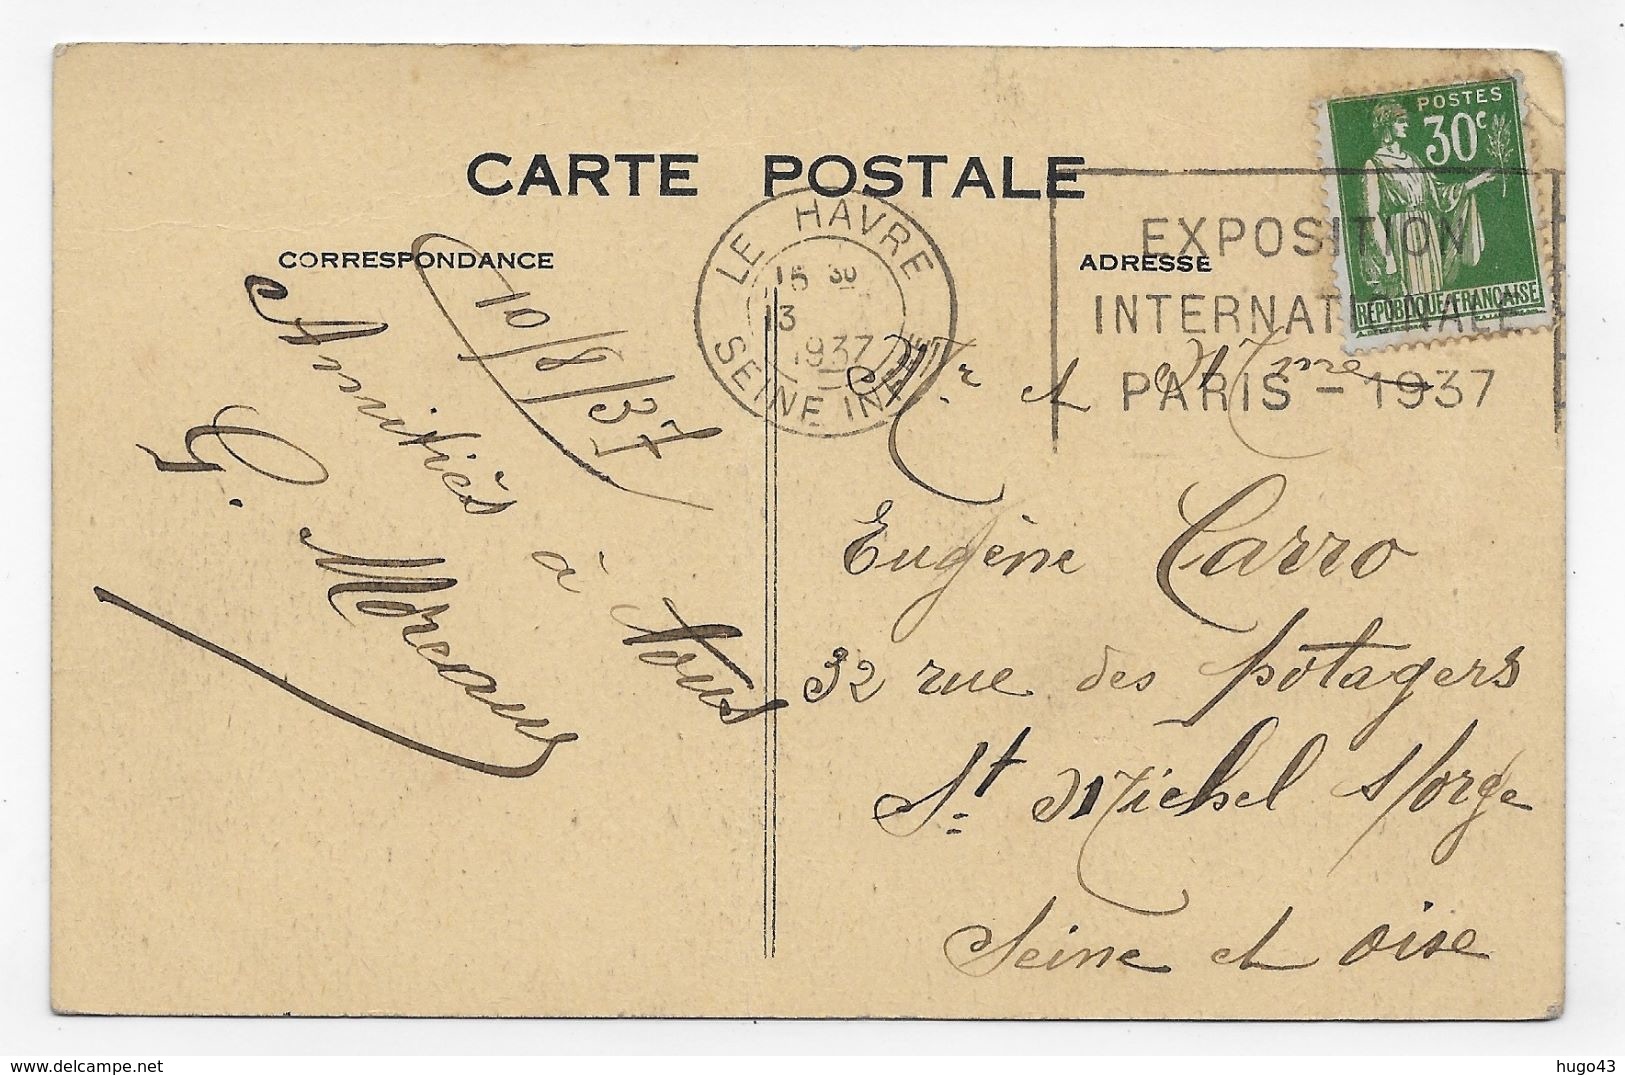 CARTE POSTALE
CORRESPONDANCE
ADRESSE
POSTES
30c
RÉPUBLIQUE FRANÇAISE
LE HAVRE
15 30
13
1937
SEINE INFRE
EXPOSITION
INTERNATIONALE
PARIS - 1937
10/8/37
Amitiés à Vous
G. Moreau
Mr et Mme
Eugène Carro
32 rue des potagers
St Michel s/orge
Seine et oise
hugo43